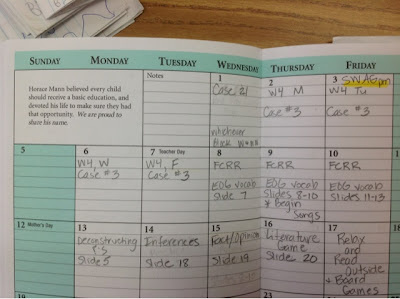 SUNDAY MONDAY TUESDAY WEDNESDAY THURSDAY FRIDAY
Horace Mann believed every child
should receive a basic education, and
devoted his life to make sure they had
that opportunity. We are proud to
share his name.
Notes
1
Case 21
whichever
Block
2
W4 M
Case #3
3 SWAG pm
W4 Tu
Case #3
5
6
W4, W
Case #3
7 Teacher Day
W4, F
Case #3
8
FCRR
EOG vocab
Slide 7
9
FCRR
EOG vocab
Slides 8-10
* Begin
Songs
10
FCRR
EOG vocab
Slides 11-13
12 Mother's Day
13
Deconstructing
Slide 5
14
Inferences
Slide 18
15
Fact/Opinion
Slide 19
16
Literature
Game
Slide 20
17
Relay
and
Read
Outside
& Board
Games
19
20
21